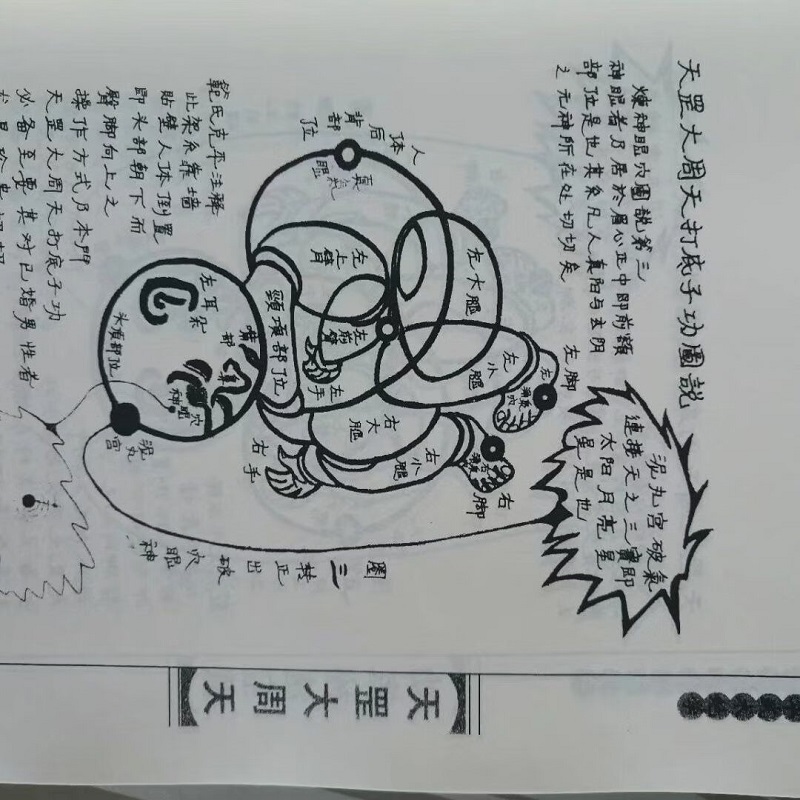 天罡大周天打底子功圖説
煉神眼穴圖説第三
神眼者乃居於眉心正中即前額
部位是也其系凡人真阳与玄阴
之元神所在处切切矣
泥丸宫破氣
連接天之三寶即
太阳月亮星
星是也
人体后背部位
真氣眼
左上臂
左前臂
左手
左大腿
左小腿
左脚
湧泉穴
頸項部位
右大腿
右小腿
右脚
右手
左耳朵
嘴部
鼻
神眼穴
头颅部位
泥丸宫
神眼穴破出正转三圈
範氏克平注释
此架系靠墙
贴壁人体倒置
即头部朝下而
臀脚向上之
操作方式乃本門
天罡大周天打底子功
必备至要其对已婚男性者
天罡大周天